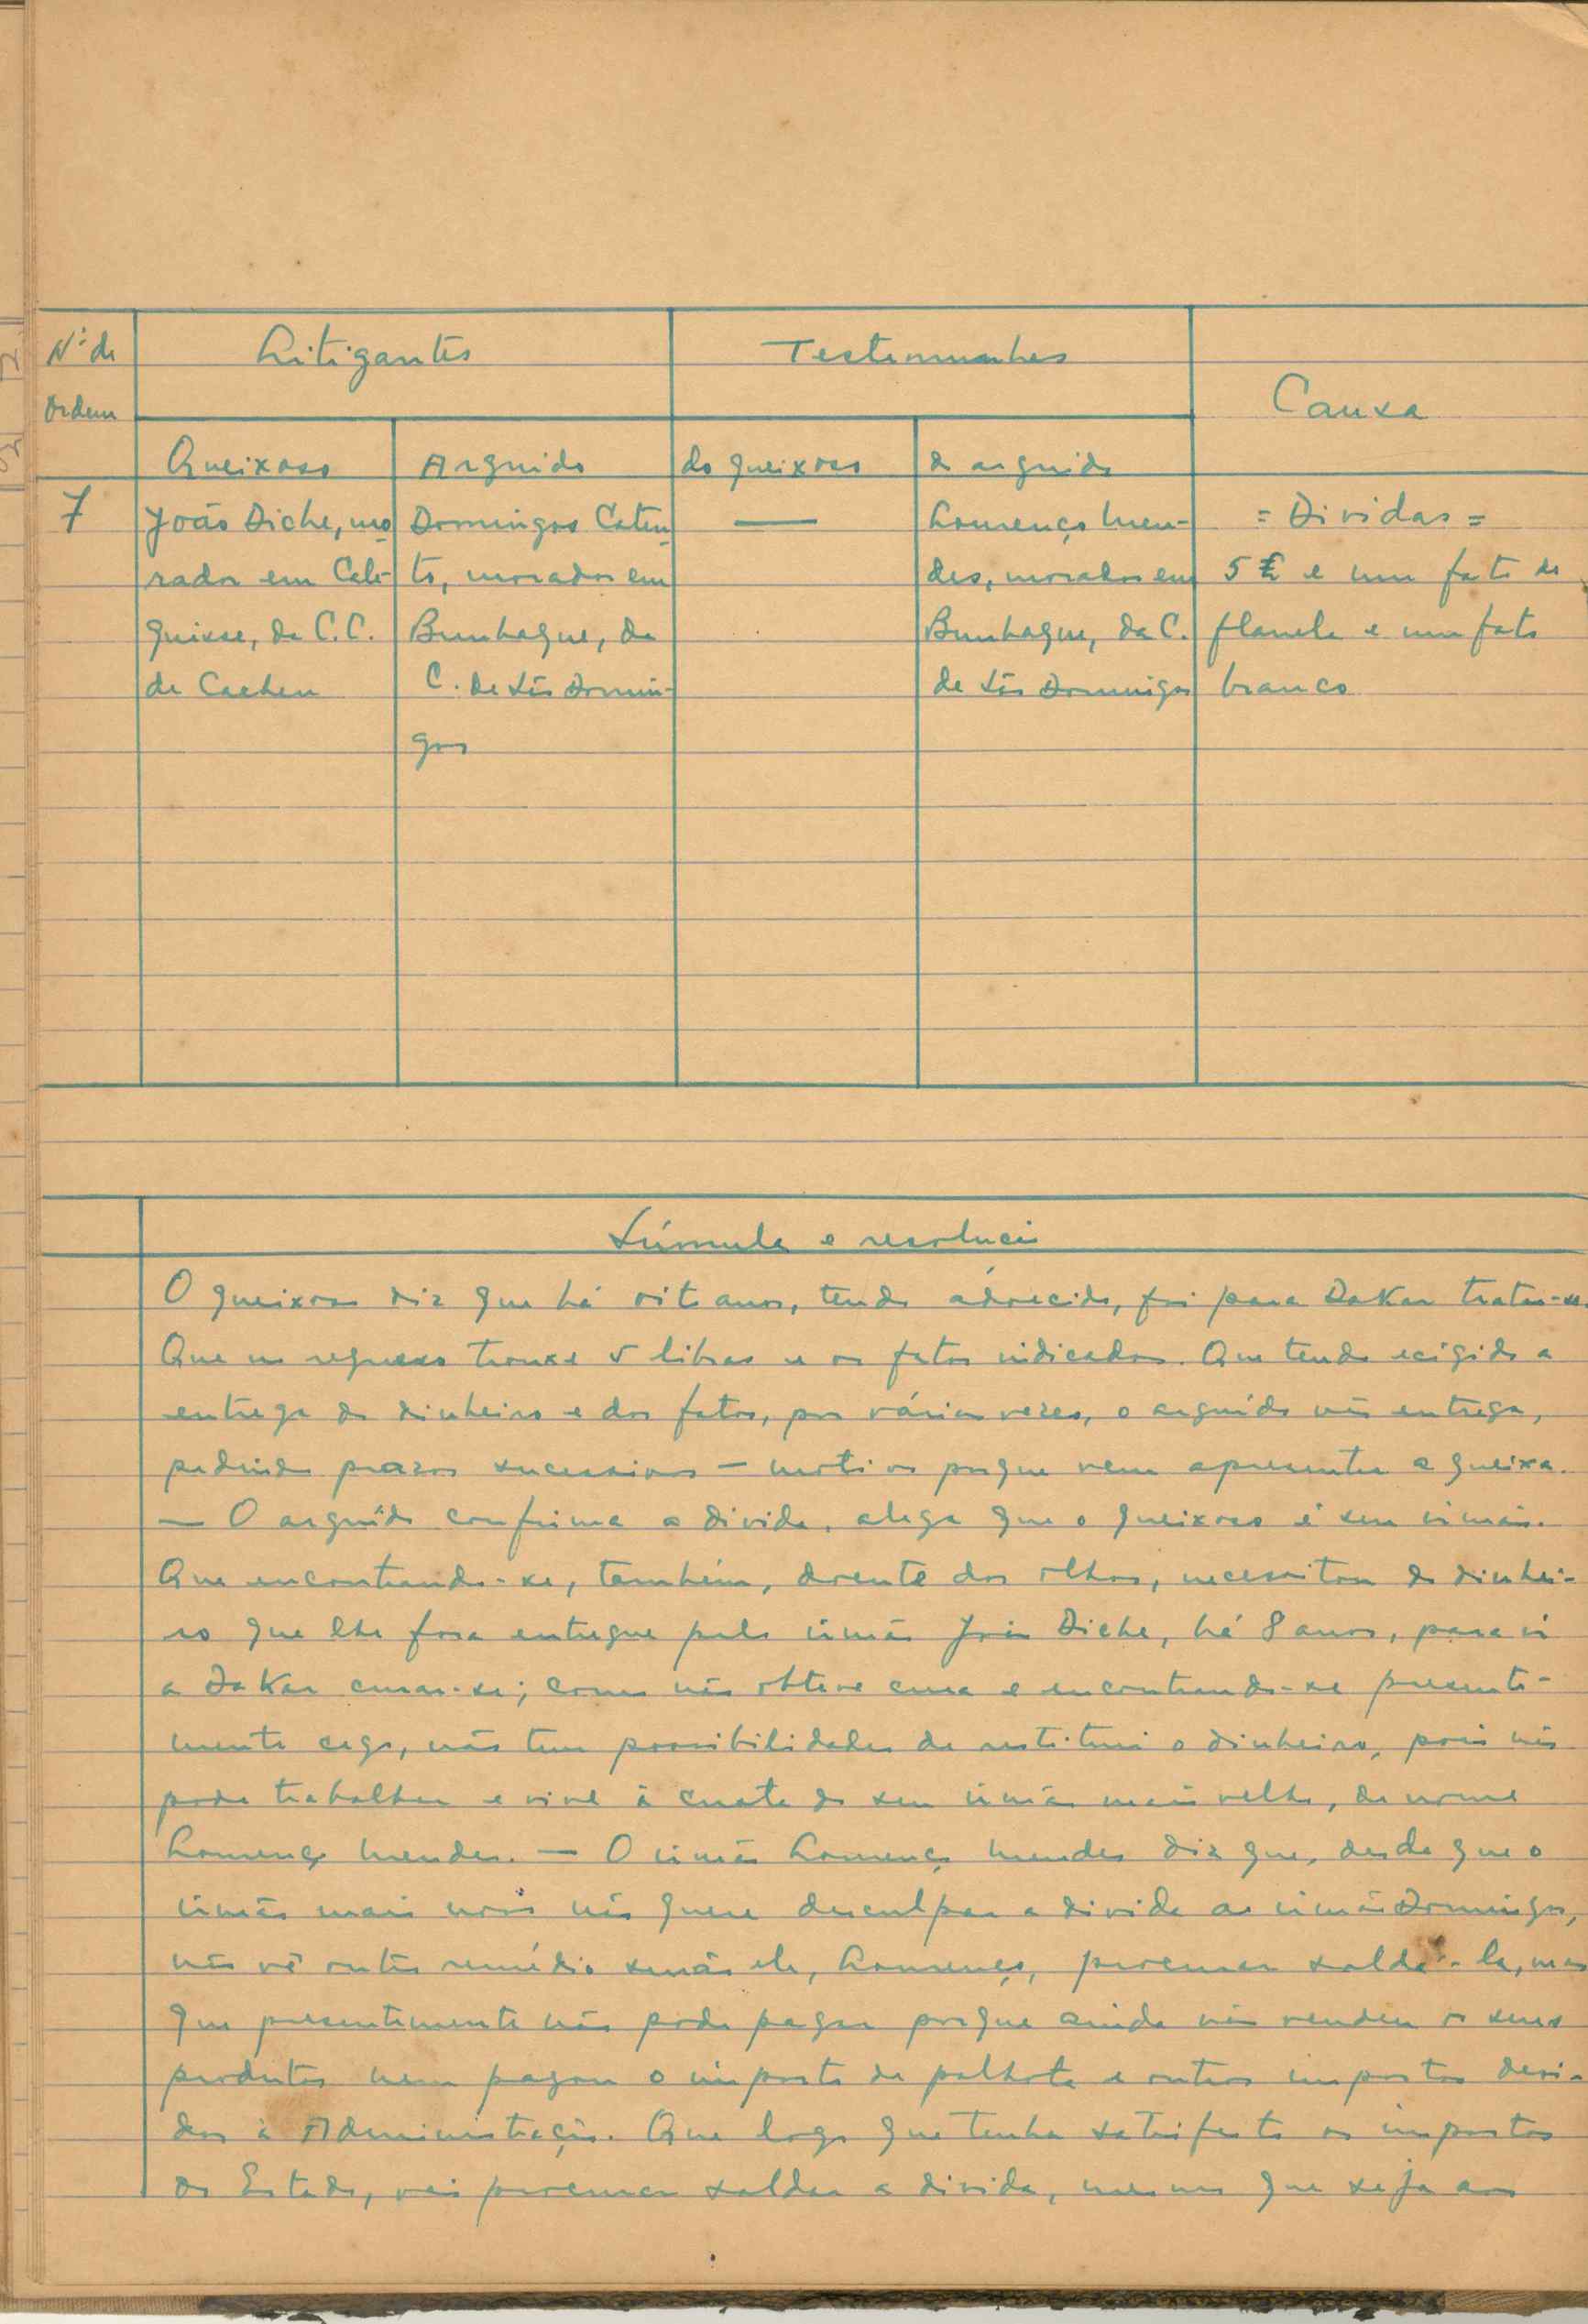 Nº de Litigantes Testemunhas
Ordem Causa
Queixoso Arguido do queixoso do arguido
7 João Diche, mo Domingos Caten — Lourenço Men- = Dividas =
rador em Cale- to, morador em des, morador em 5 £ e um fato de
quisse, da C.C. Bunhaque, da Bunhaque, da C. flanela e um fato
de Cacheu C. de São Domin- de São Domingos branco
gos
Súmula e resolução
O queixoso diz que há oito anos, tendo adoecido, foi para Dakar tratar-se.
Que no regresso trouxe 5 libras e os fatos indicados. Que tendo exigido a
entrega do dinheiro e dos fatos, por várias vezes, o arguido não entrega,
pedindo prazos sucessivos — motivo porque vem apresentar a queixa.
— O arguido confirma a divida, alega que o queixoso é seu irmão.
Que encontrando-se, também, doente dos olhos, necessitou do dinhei-
ro que lhe fora entregue pelo irmão João Diche, há 8 anos, para ir
a Dakar curar-se; como não obteve cura e encontrando-se presente-
mente cego, não tem possibilidades de restituir o dinheiro, pois não
pode trabalhar e vive à custa do seu irmão mais velho, de nome
Lourenço Mendes. — O irmão Lourenço Mendes diz que, desde que o
irmão mais novo não quere desculpar a divida ao irmão Domingos,
não vê outro remédio senão ele, Lourenço, procurar saldá-la, mas
que presentemente não pode pagar porque ainda não vendeu os seus
produtos nem pagou o imposto de palhota e outros impostos devi-
dos à Administração. Que logo que tenha satisfeito os impostos
do Estado, vai procurar saldar a divida, mesmo que seja aos